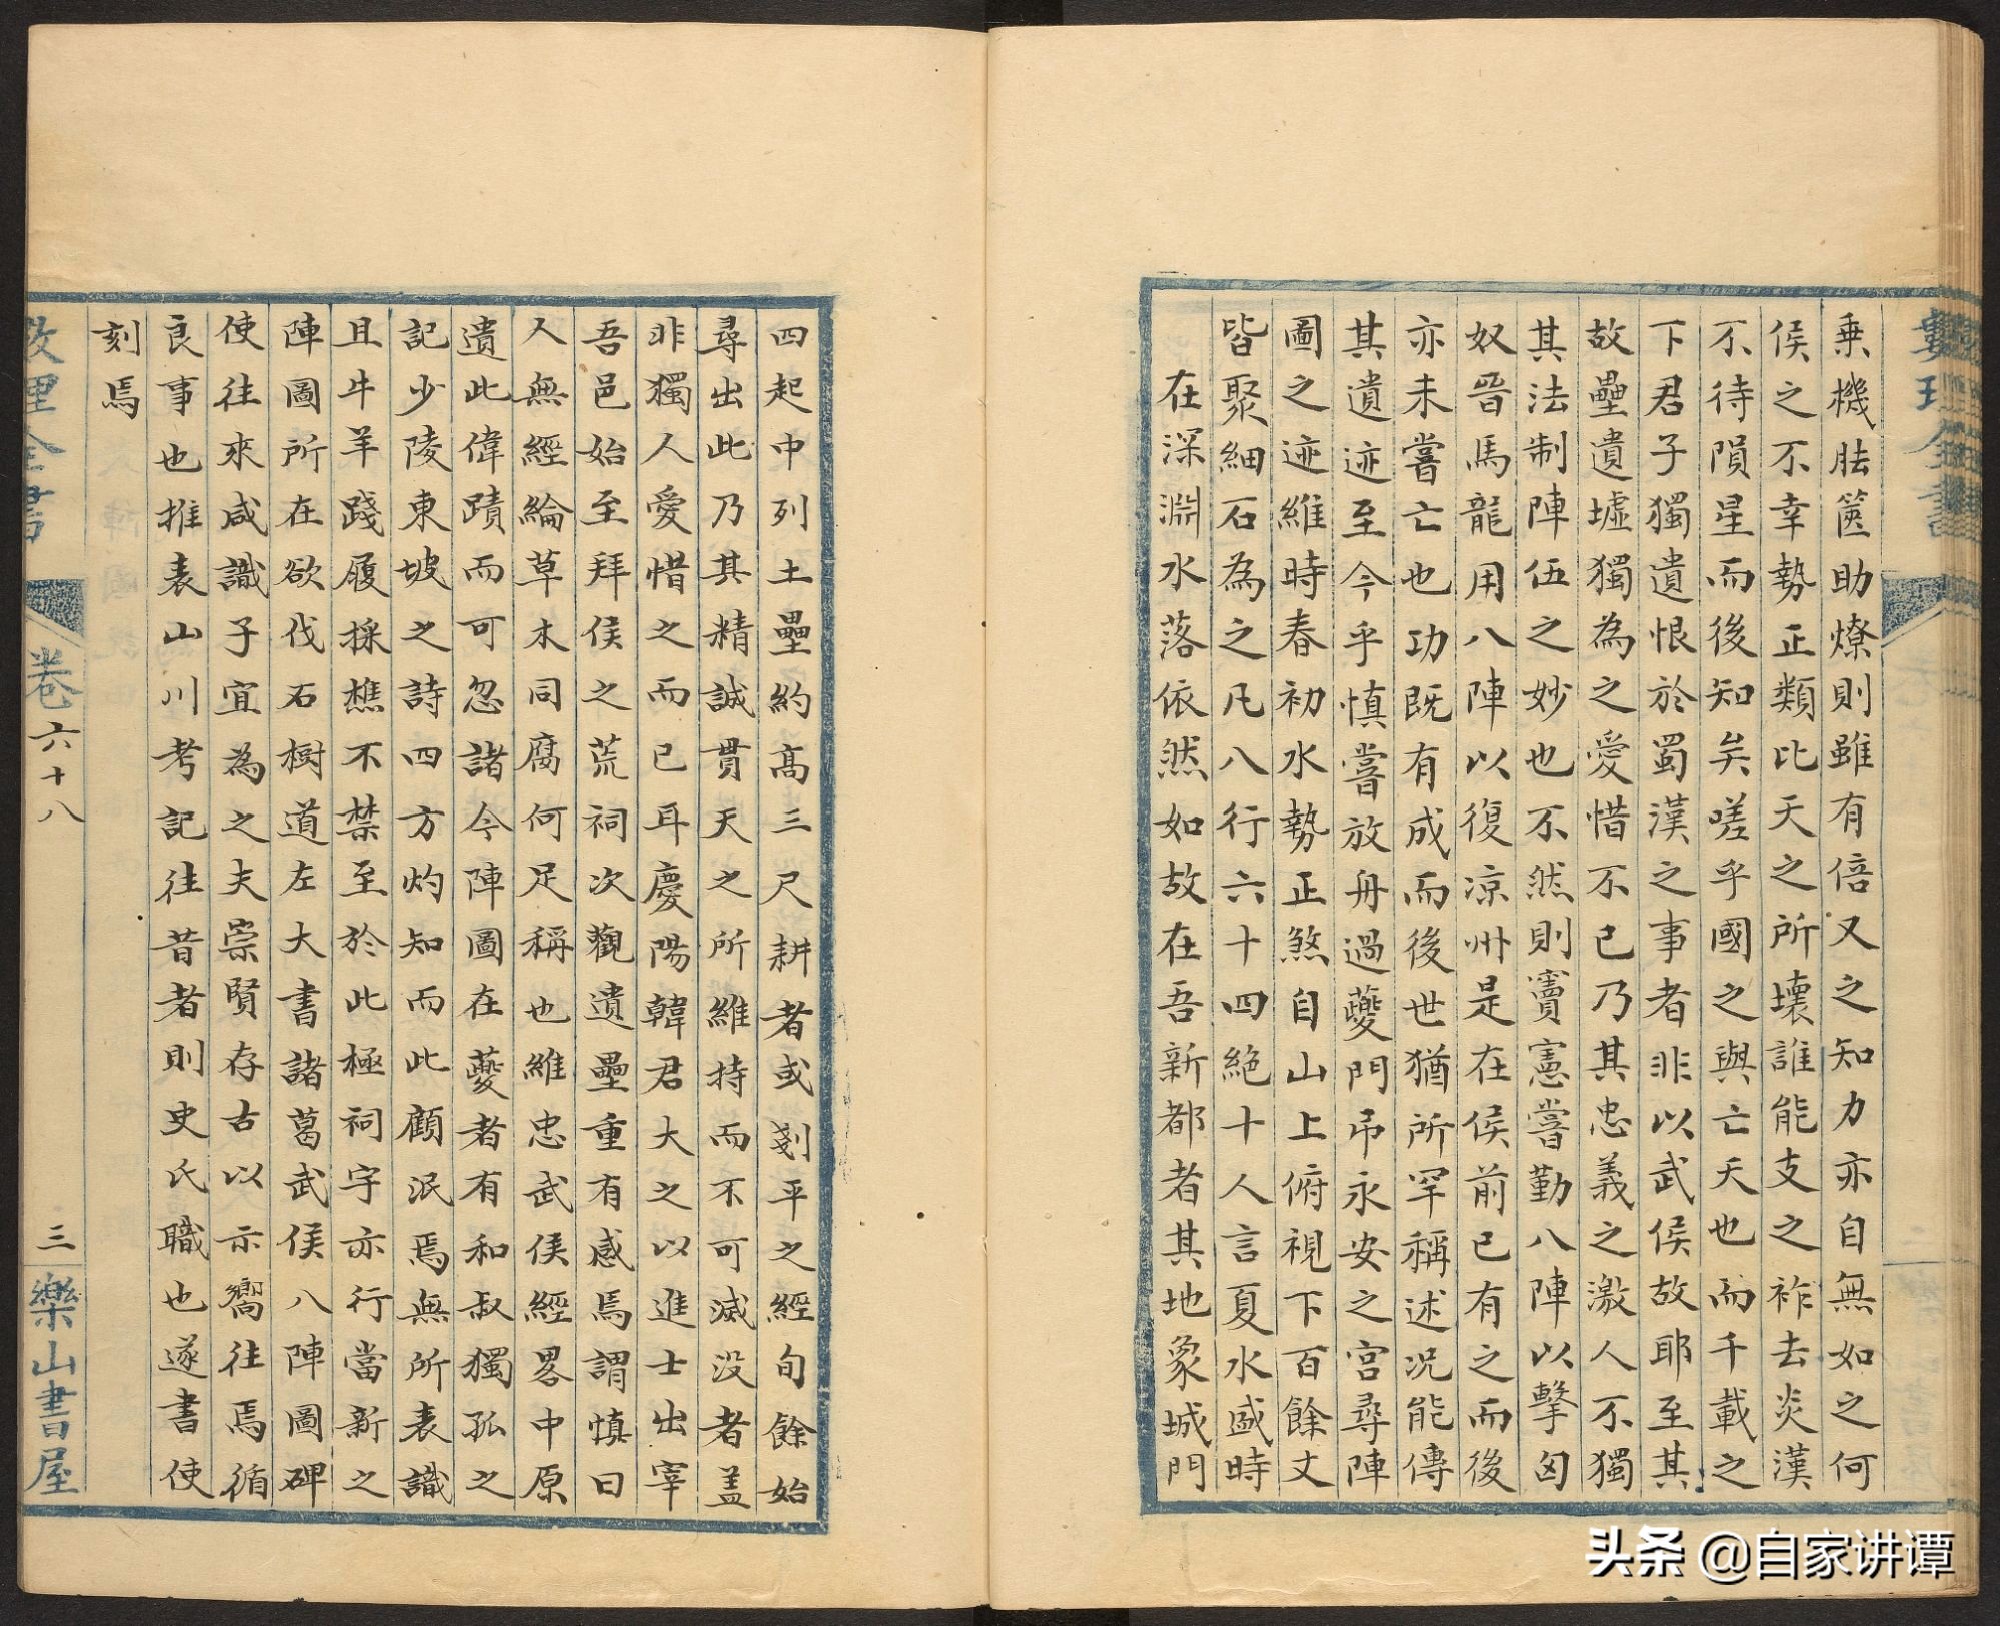 乗機胠篋助燎則雖有倍又之知力亦自無如之何
侯之不幸勢正類比天之所壞誰能支之祚去炎漢
不待隕星而後知矣嗟乎國之與亡天也而千載之
下君子獨遺恨於蜀漢之事者非以武侯故耶至其
故壘遺墟獨為之愛惜不已乃其忠義之激人不獨
其法制陣伍之妙也不然則竇憲嘗勤八陣以擊匈
奴晉馬龍用八陣以復涼州是在侯前已有之而後
亦未嘗亡也功既有成而後世猶所罕稱述况能傳
其遺迹至今乎慎嘗放舟過夔門吊永安之宮尋陣
圖之迹維時春初水勢正煞自山上俯視下百餘丈
皆聚細石為之凡八行六十四絕十人言夏水盛時
在深淵水落依然如故在吾新都者其地象城門
四起中列土壘約高三尺耕者或剗平之經旬餘始
尋出此乃其精誠貫天之所維持而不可滅没者盖
非獨人愛惜之而已耳慶陽韓君大之以進士出宰
吾邑始至拜侯之荒祠次觀遺壘重有感焉謂慎曰
人無經綸草木同腐何足稱也維忠武侯經畧中原
遺此偉蹟而可忽諸今陣圖在夔者有和叔獨孤之
記少陵東坡之詩四方灼知而此顧泯焉無所表識
且牛羊踐履採樵不禁至於此極祠宇亦行當新之
陣圖所在欲伐石樹道左大書諸葛武侯八陣圖碑
使往來咸識子宜為之夫崇賢存古以示嚮往焉循
良事也推表山川考記往昔者則史氏職也遂書使
刻焉
數理全書
卷六十八
三
樂山書屋
头条 @自家讲谭